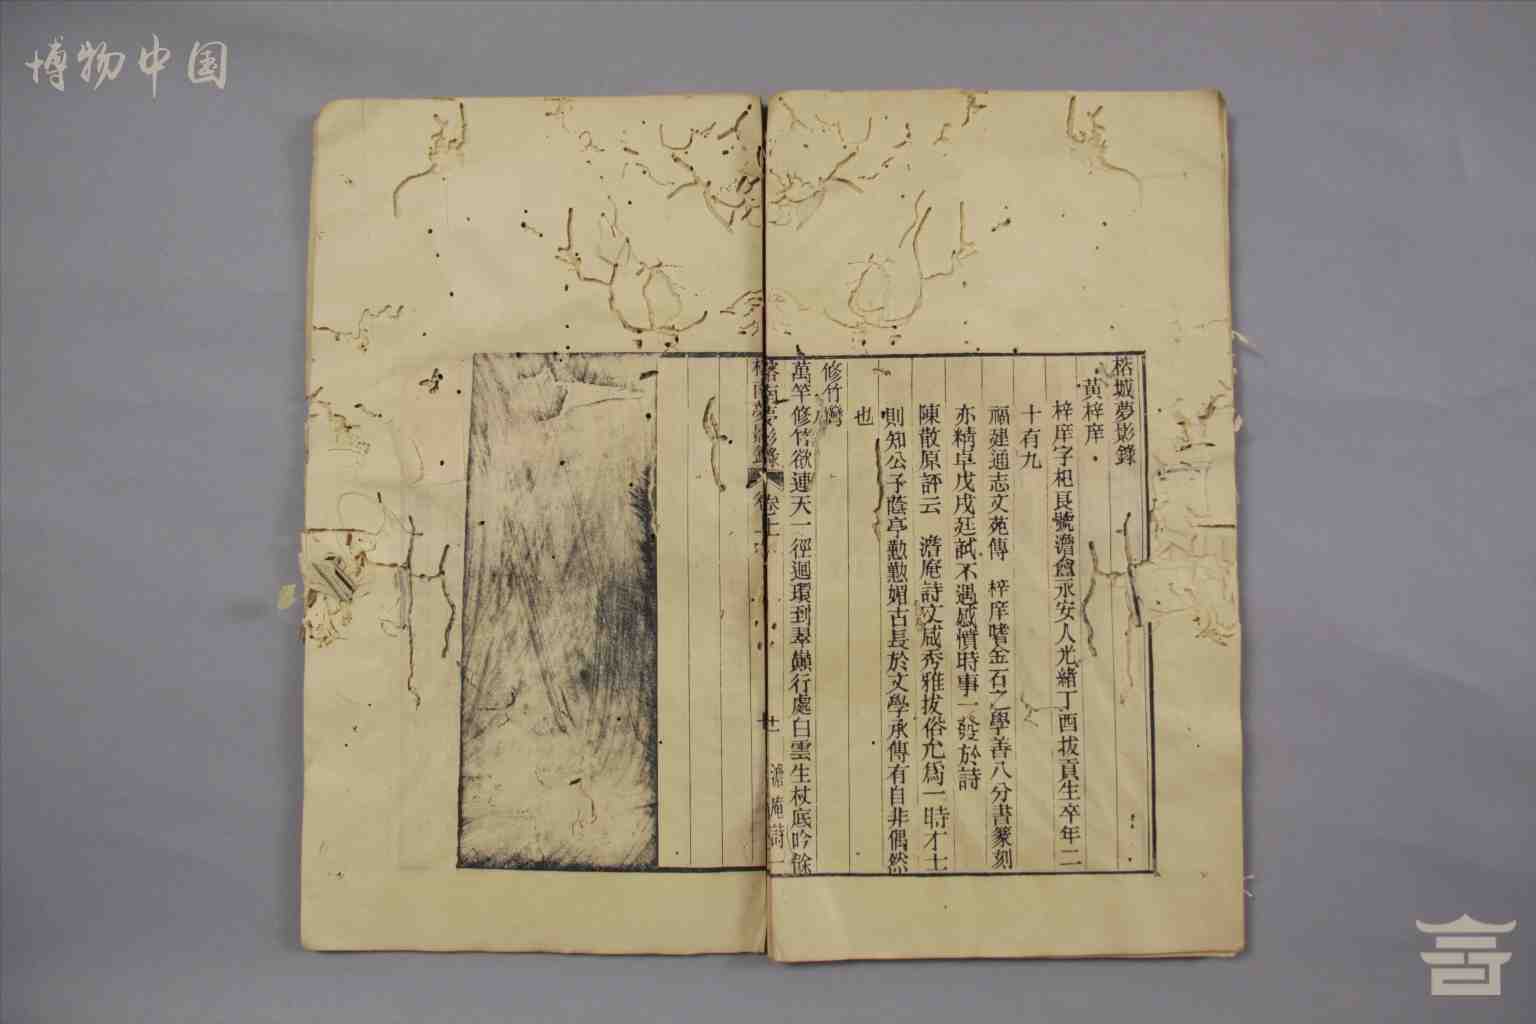 博物中国
榕城夢影錄
黄梓庠
梓庠字杞良號澹盦永安人光緒丁酉拔貢生卒年二
十有九
福建通志文苑傳 梓庠嗜金石之學善八分書篆刻
亦精卓戊戌廷試不遇感憤時事一發於詩
陳散原評云 澹庵詩文咸秀雅拔俗允爲一時才士
則知公子蔭亭懃懃媚古長於文學承傳有自非偶然
也
修竹灣
萬竿修竹欲連天一徑迴環到翠巔行處白雲生杖底吟餘
夢影錄 卷上 廿 澹庵詩一